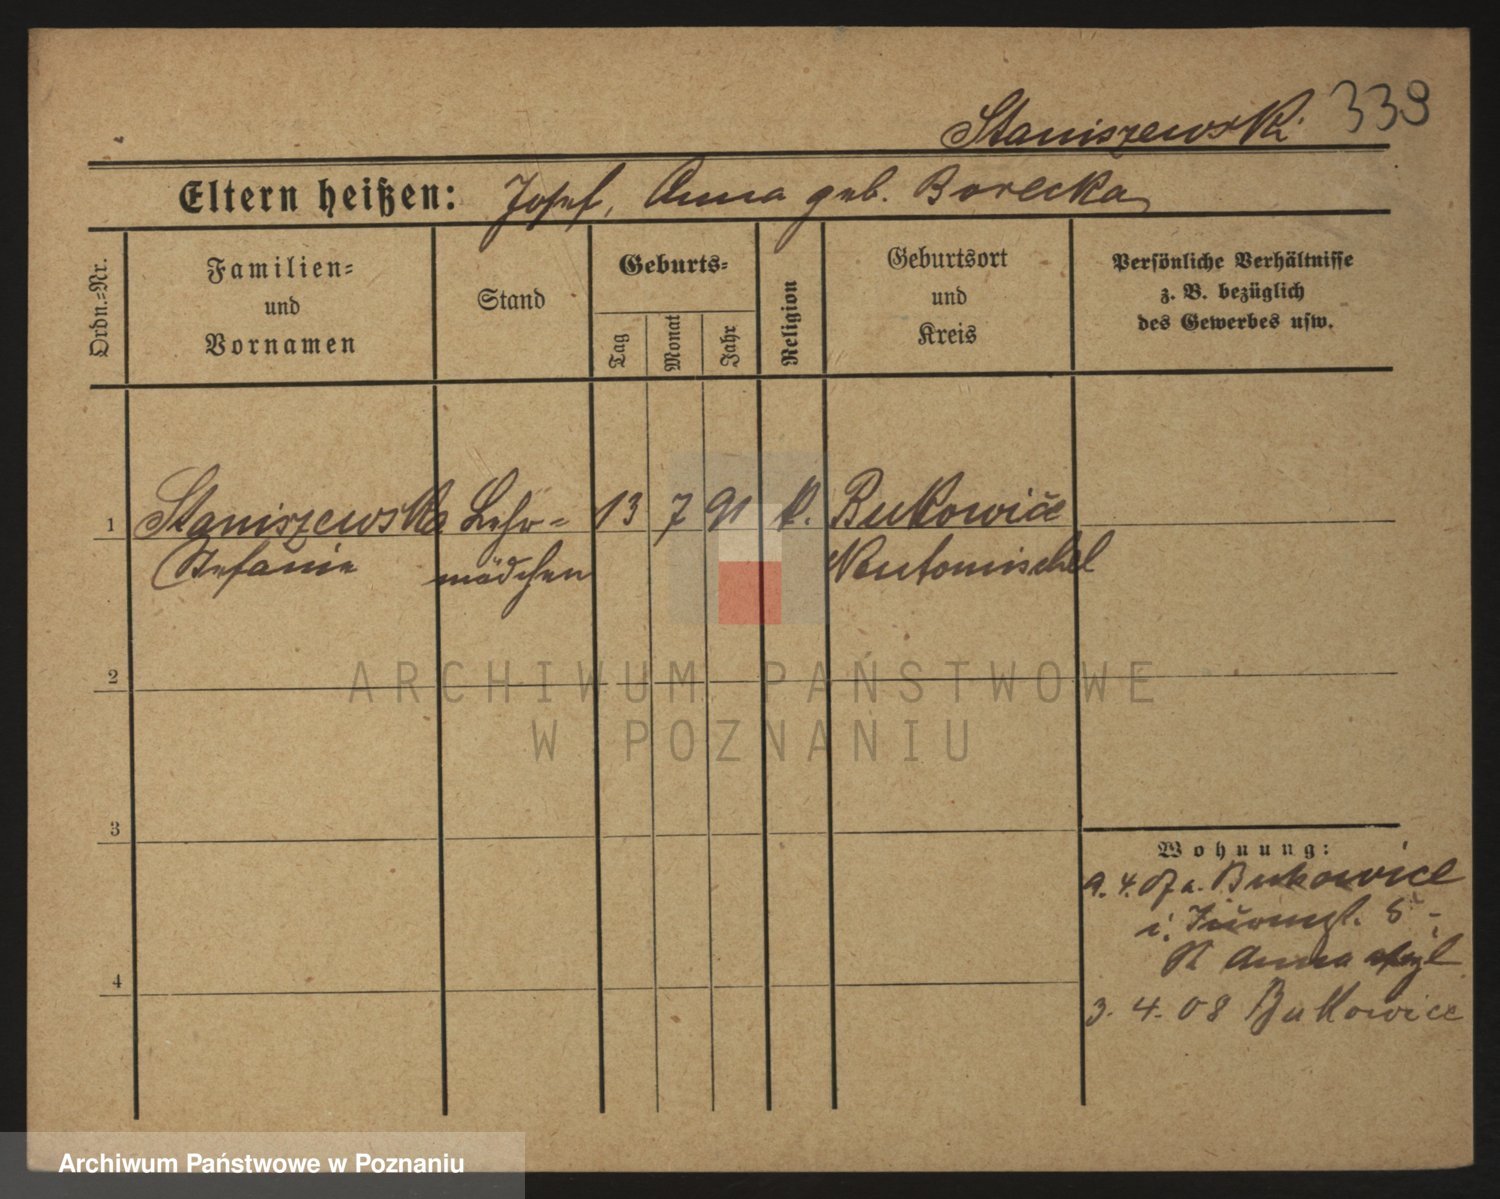 Staniszewski 339
Eltern heißen: Josef, Anna geb. Borecka
Ordn.=Nr.
Familien=
und
Vornamen
Stand
Geburts=
Tag
Monat
Jahr
Religion
Geburtsort
und
Kreis
Persönliche Verhältnisse
z. B. bezüglich
des Gewerbes usw.
1 Staniszewska Lehr= 13 7 91 k. Bukowice
Stefanie mädchen Neutomischel
2
ARCHIWUM PAŃSTWOWE
W POZNANIU
3
Wohnung:
9. 4. 07 a. Bukowice
Anna
4
3. 4. 08 Bukowice
Archiwum Państwowe w Poznaniu